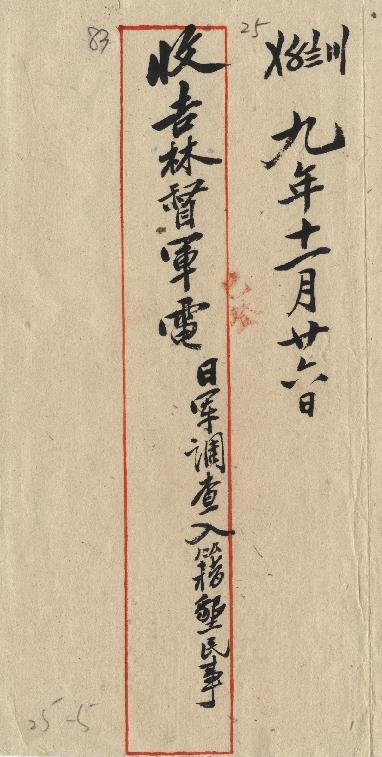 九年十一月廿六日
收吉林督軍電 日军调查入籍墾民事
已發
25
83
25-5